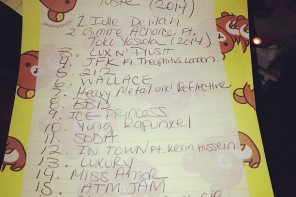 (2014)
1 Idle Delilah
2. Gimme A Chance Ft.
Toko Yasuda (2014)
3. LUX N' PRUSIT
4. JFK Ft. Theophilus London
5. 212
6. WALLACE
7. Heavy Metal and Reflective
8. BBD
9. ICE PRINCESS
10. Yung Rapunxel
11. SODA
12. IN TOWN FT. Kevin Hussein
13. LUXURY
14. Miss Amor
15. ATM JAM